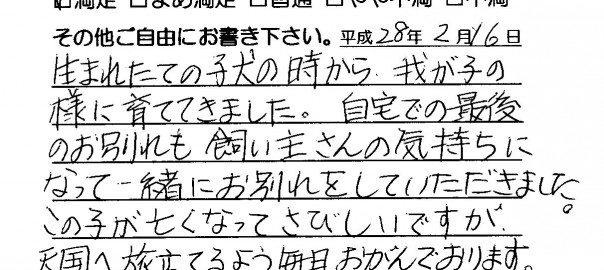 満足 □まあ満足 □普通 □やや不満 □不満
その他ご自由にお書き下さい。平成28年2月16日
生まれたての子犬の時から 我が子の
様に育ててきました。自宅での最後
のお別れも飼い主さんの気持ちに
なって一緒にお別れをしていただきました。
この子が亡くなってさびしいですが
天国へ旅立てるよう毎日おがんでおります。